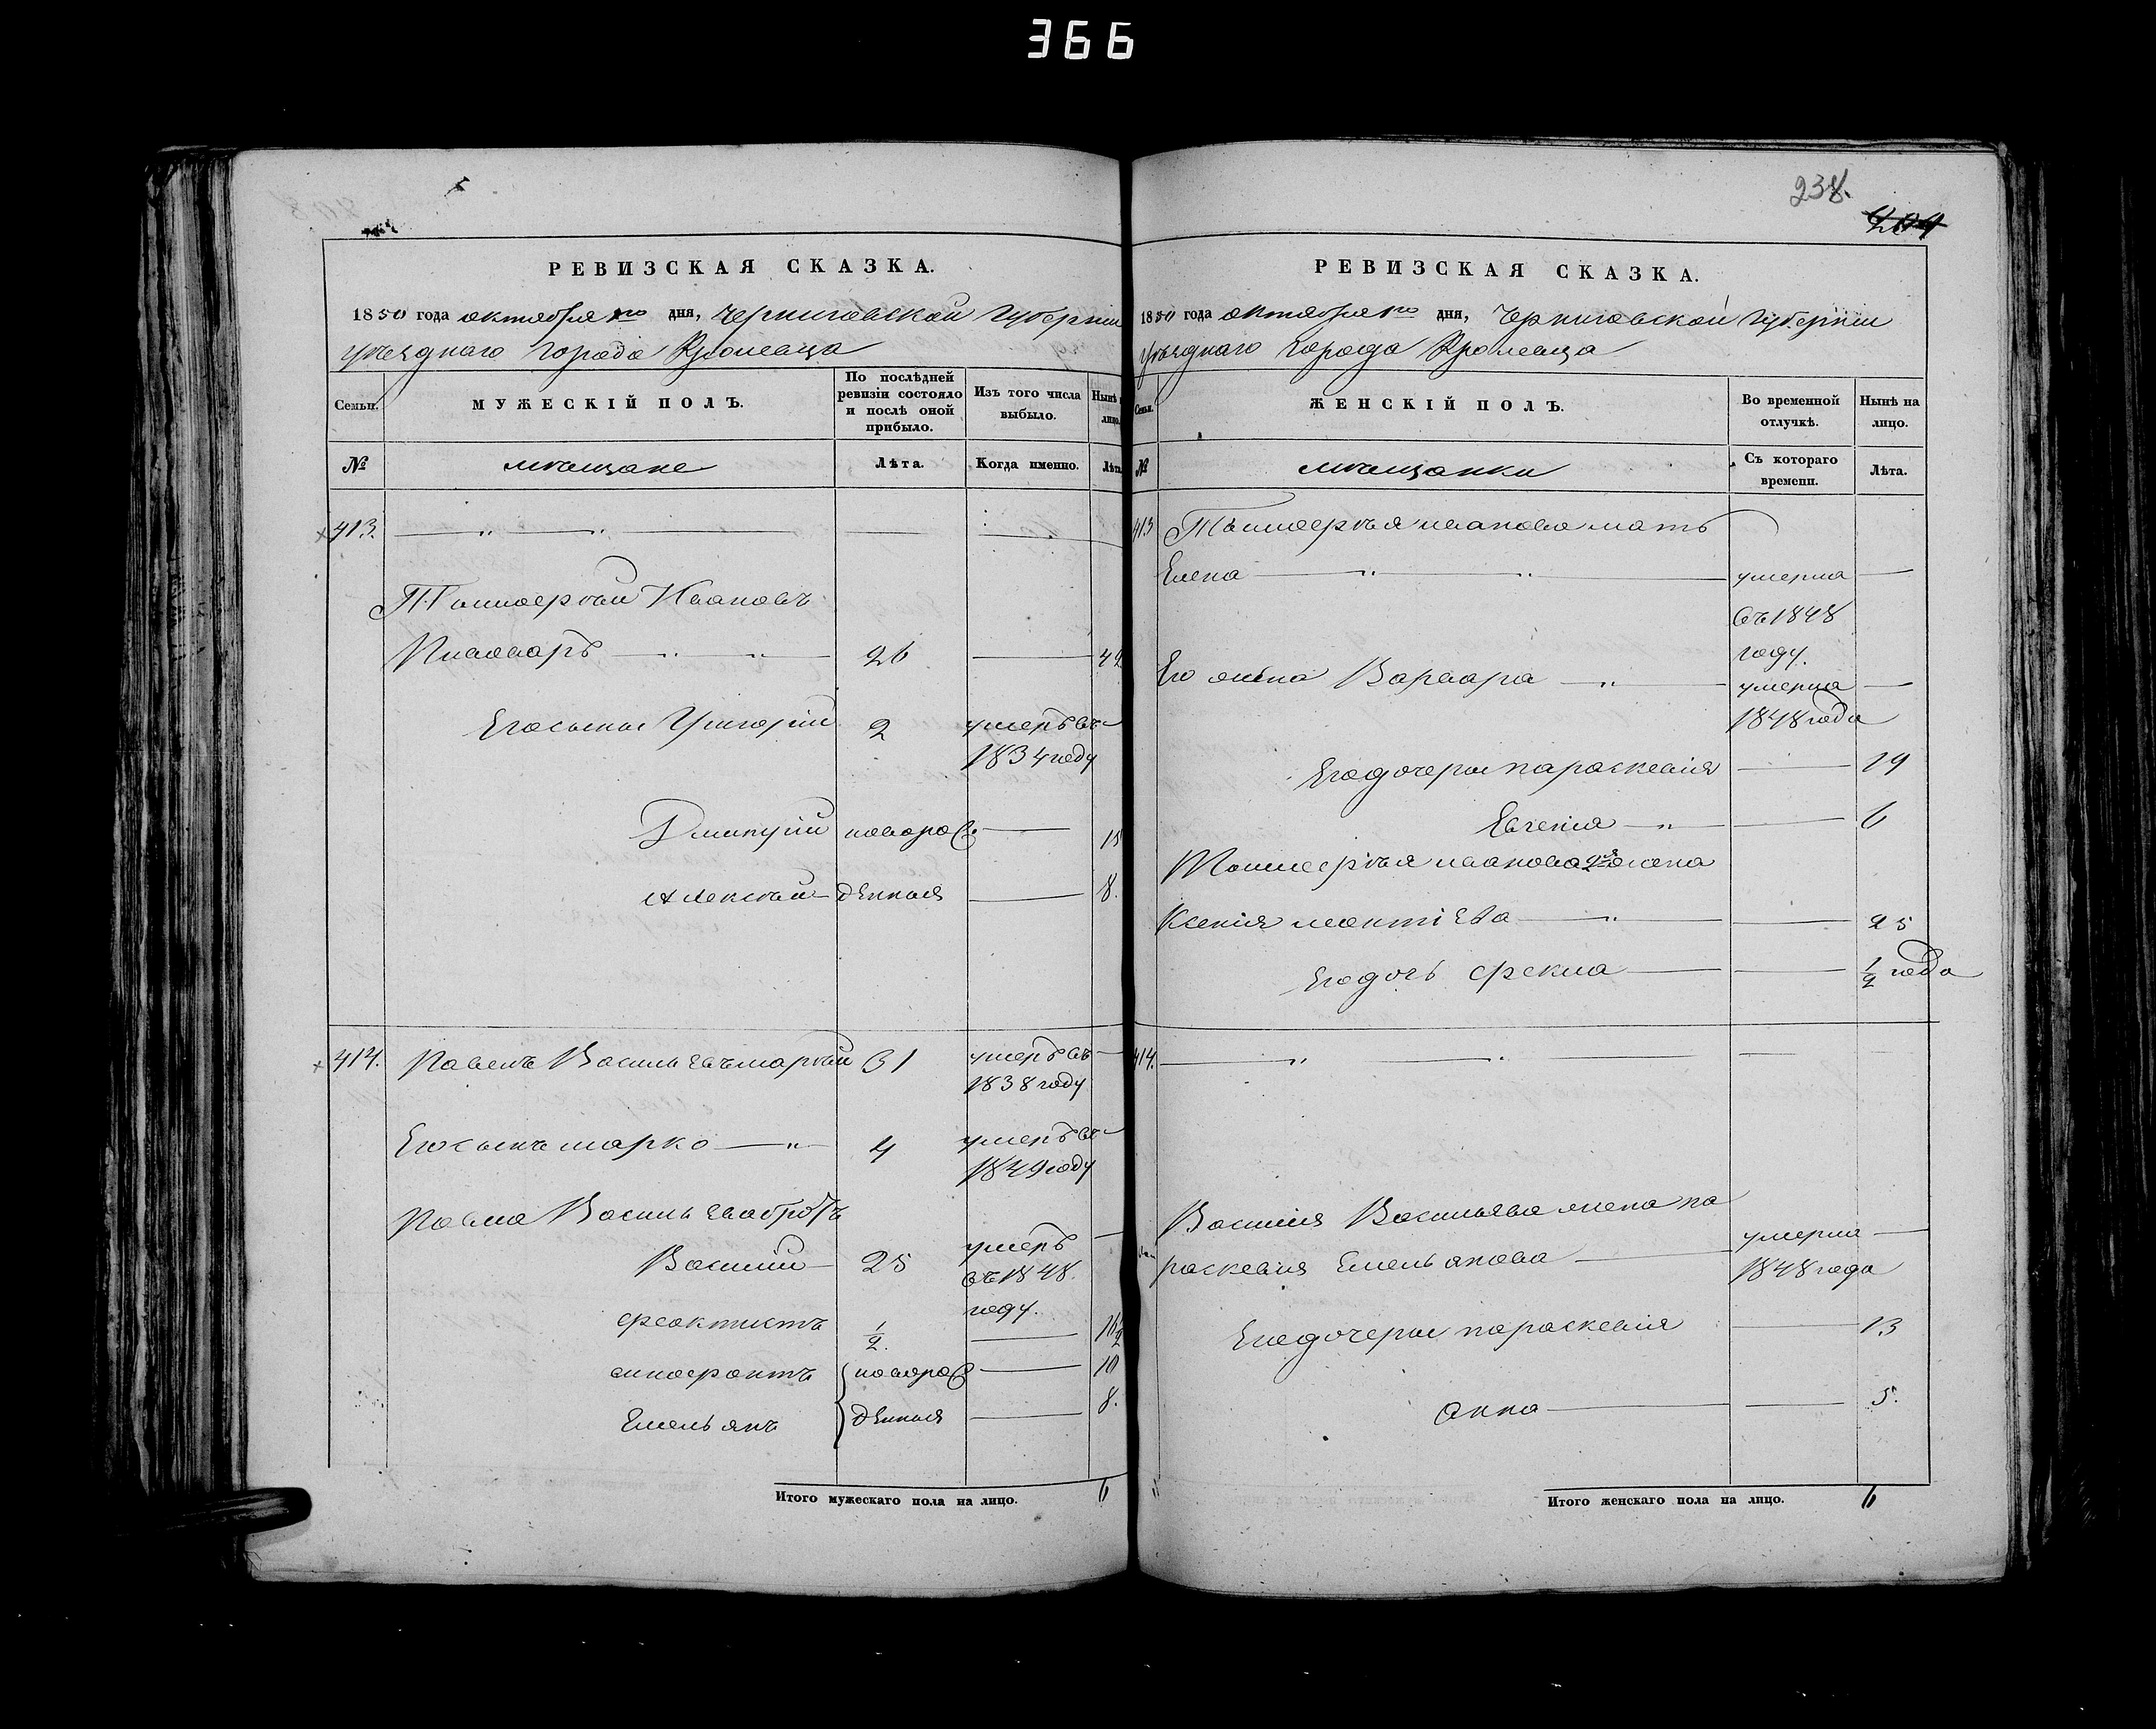 366
РЕВИЗСКАЯ СКАЗКА.
1850 года октября 1го дня, Черниговской Губерніи
уѣзднаго города Кролевца
Семьи.
МУЖЕСКІЙ ПОЛЪ.
По послѣдней ревизіи состояло и послѣ оной прибыло.
Изъ того числа выбыло.
Нынѣ лицо.
№
мѣщане
Лѣта.
Когда именно.
Лѣта
413.
Ивановъ
26 42
Его сынъ Григорій 2 умеръ въ
1834 году
Дмитрій новорож 15
Алексѣй денныя 8.
414. Павелъ Васильевъ 31 умеръ въ
1838 году
Его сынъ Марко 4 умеръ въ
1849 году
Павла Васильева братъ
Василій 25 умеръ
въ 1848
году.
Феоктистъ 1/2. 16 1/2
новорож 10
Емельянъ денныя 8.
Итого мужескаго пола на лицо. 6
238.
РЕВИЗСКАЯ СКАЗКА.
1850 года октября 1го дня, Черниговской Губерніи
уѣзднаго города Кролевца
Семьи.
ЖЕНСКІЙ ПОЛЪ.
Во временной отлучкѣ.
Нынѣ на лицо.
№
мѣщанки
Съ котораго времени.
Лѣта.
413 Иванова мать
Елена умерла
въ 1848
году.
Его жена Варвара умерла
1848 года
Его дочери Параскевія 19
Евгенія 6
Иванова 2я жена
Ксенія 25
Его дочь Фекла 1/2 года
414.
Василія Васильева жена Па
раскевія Емельянова умерла
1848 года
Его дочери Параскевія 13
Анна 5.
Итого женскаго пола на лицо. 6